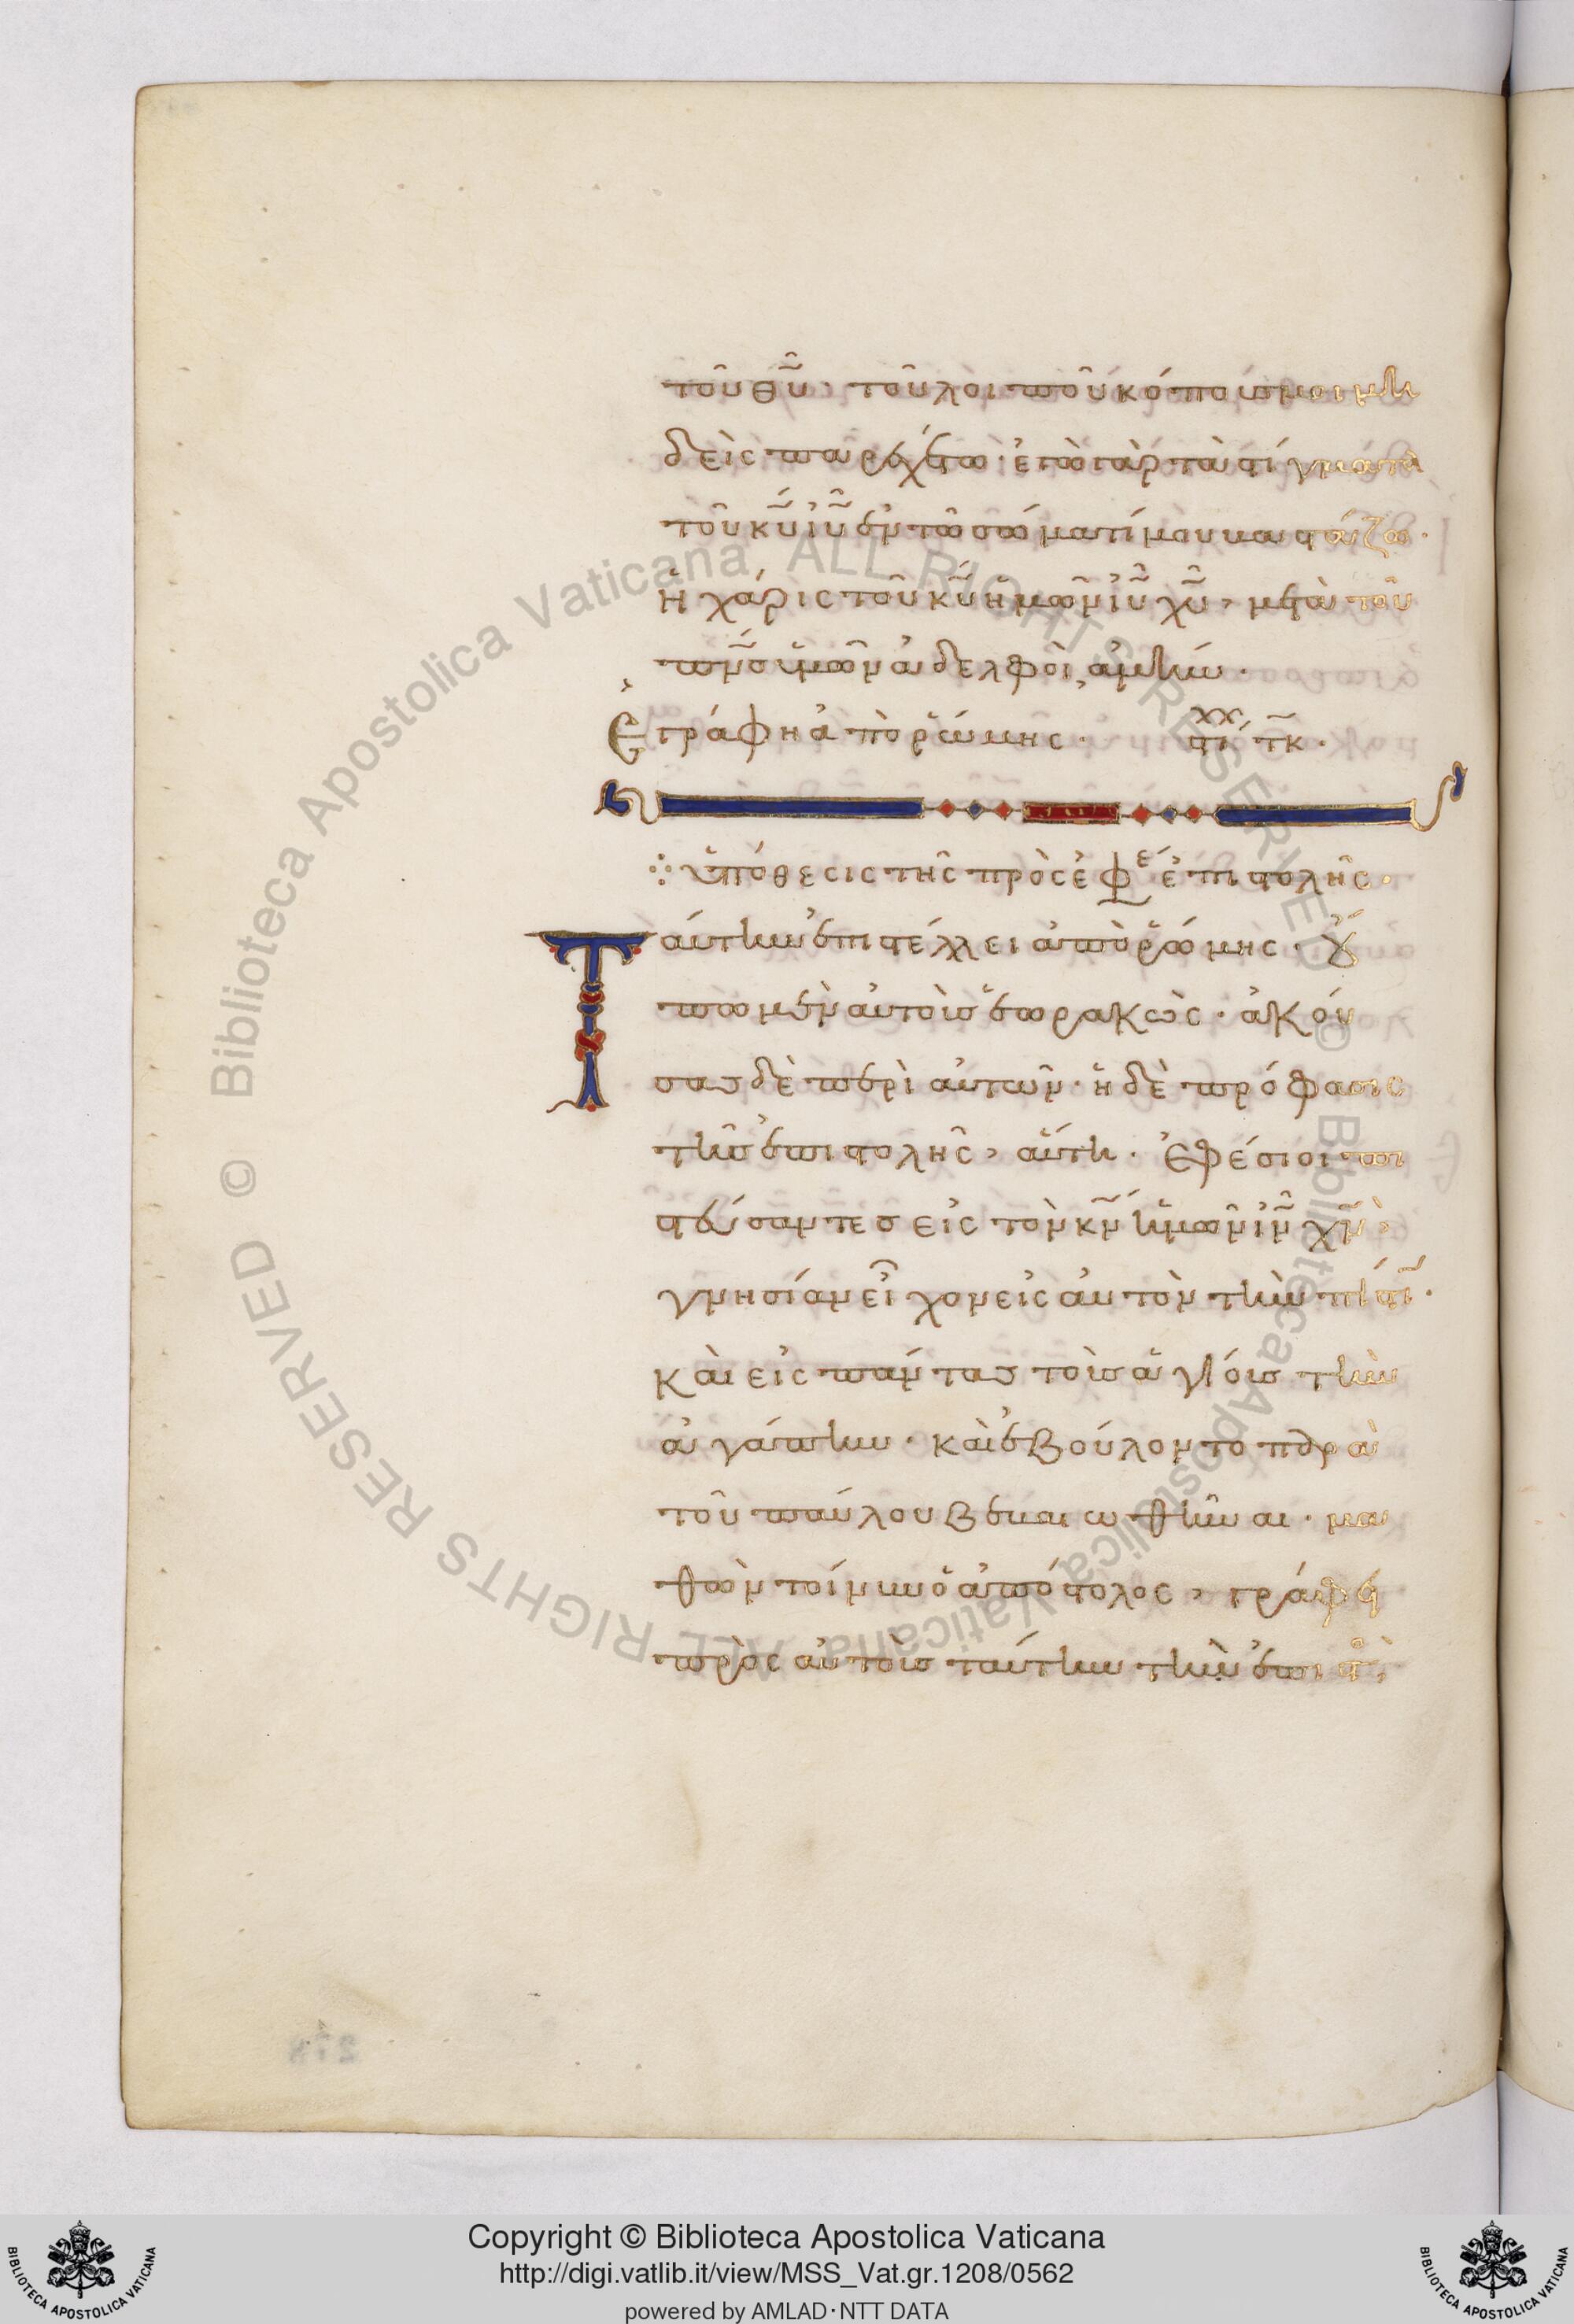 τοῦ θῦ· τοῦ λοιποῦ κόπους μοι μη
δεὶς παρεχέτω· ἐγὼ γὰρ τὰ στίγματα
τοῦ κυ ιυ ἐν τῶ σώματί μου βαστάζω·
Ἡ χάρις τοῦ κυ ἡμῶν ιυ χυ, μετὰ τοῦ
πνσ ὑμῶν ἀδελφοὶ, ἀμήν·
Ἐγράφη ἀπὸ ῥώμης· στι τκ·
ὑπόθεσις τῆς πρὸς ἐφε ἐπιστολῆς·
Ταύτην ἐπιστέλλει ἀπὸ ῥώμης· οὔ
πω μὲν αὐτοὺς ἑωρακὼς· ἀκού
σας δὲ περὶ αὐτῶν· ἡ δὲ πρόφασις
τῆς ἐπιστολῆς, αὕτη· Ἐφέσιοι πι
στεύσαντες εἰς τὸν κν ἡμῶν ιν χν,
γνησίαν εἶχον εἰς αὐτὸν τὴν πίστι·
καὶ εἰς πάντας τοὺς ἁγίους τὴν
ἀγάπην· καὶ ἐβούλοντο παρὰ
τοῦ παύλου βεβαιωθῆναι· μα
θὼν τοίνυν ὁ ἀπόστολος, γράφει
πρὸς αὐτοὺς ταύτην τὴν ἐπιστο
Copyright © Biblioteca Apostolica Vaticana
http://digi.vatlib.it/view/MSS_Vat.gr.1208/0562
powered by AMLAD·NTT DATA
BIBLIOTECA APOSTOLICA VATICANA
BIBLIOTECA APOSTOLICA VATICANA
© Biblioteca Apostolica Vaticana ALL RIGHTS RESERVED © Biblioteca Apostolica Vaticana ALL RIGHTS RESERVED